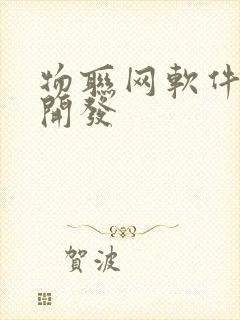 物聯网軟件
開發
賀波